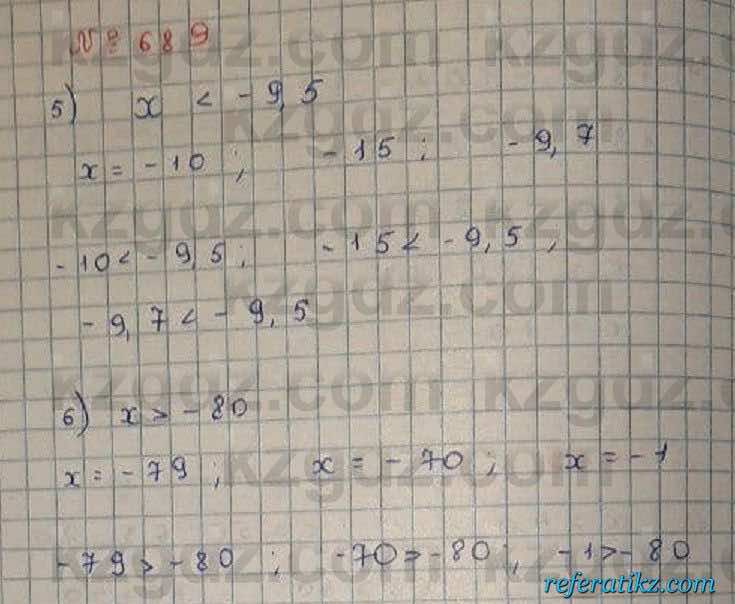 № 689
5) x < -9,5
x = -10 ; -15 ; -9,7
-10 < -9,5 ; -15 < -9,5 ,
-9,7 < -9,5
6) x > -80
x = -79 ; x = -70 ; x = -1
-79 > -80 ; -70 > -80 ; -1 > -80
kzgdz.com
referatikz.com